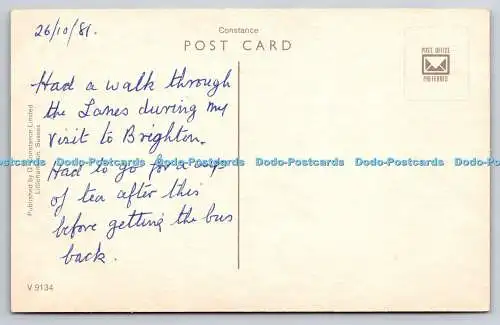 26/10/81.
Constance
POST CARD
POST OFFICE
PREFERRED
Had a walk through
the Lanes during my
visit to Brighton.
Had to go for a cup
of tea after this
before getting the bus
back.
Published by D. Constance Limited
Littlehampton, Sussex
V 9134
Dodo-Postcards Dodo-Postcards Dodo-Postcards Dodo-Postcards Dodo-Postcards